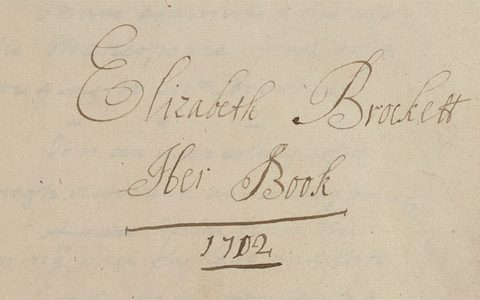 Elizabeth Brockett
Her Book
1702